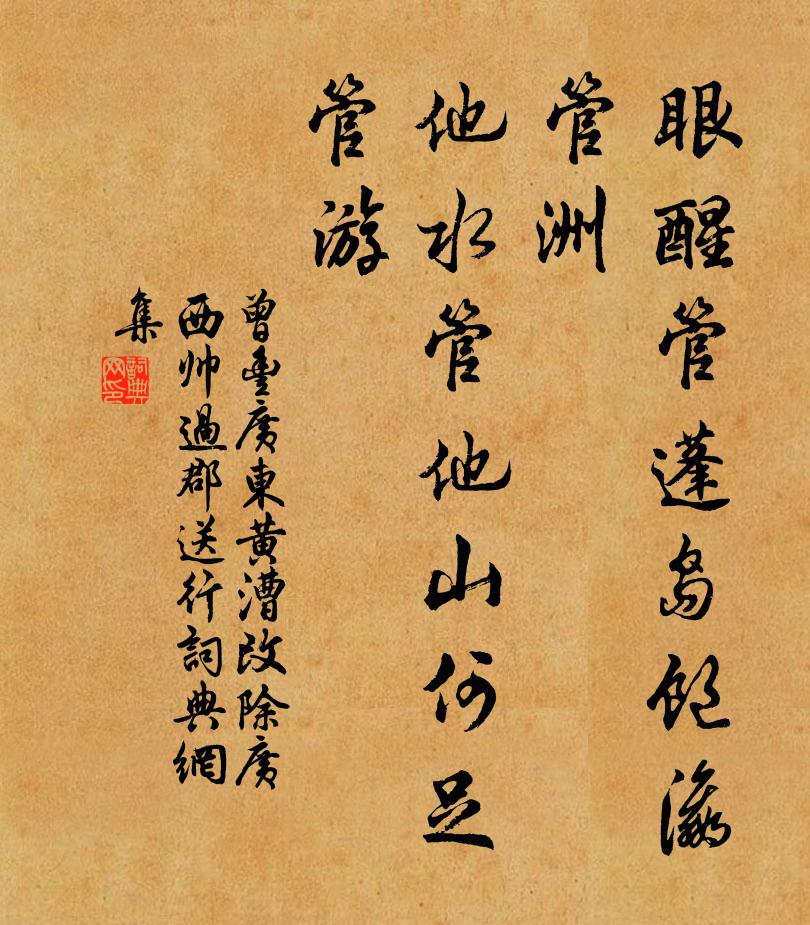 眼醒管蓬島飽瀛
管洲
他水管他山何足
管游
曾豐廣東黄漕改除廣
西帥過郡送行詞典網
集
詞典
网印